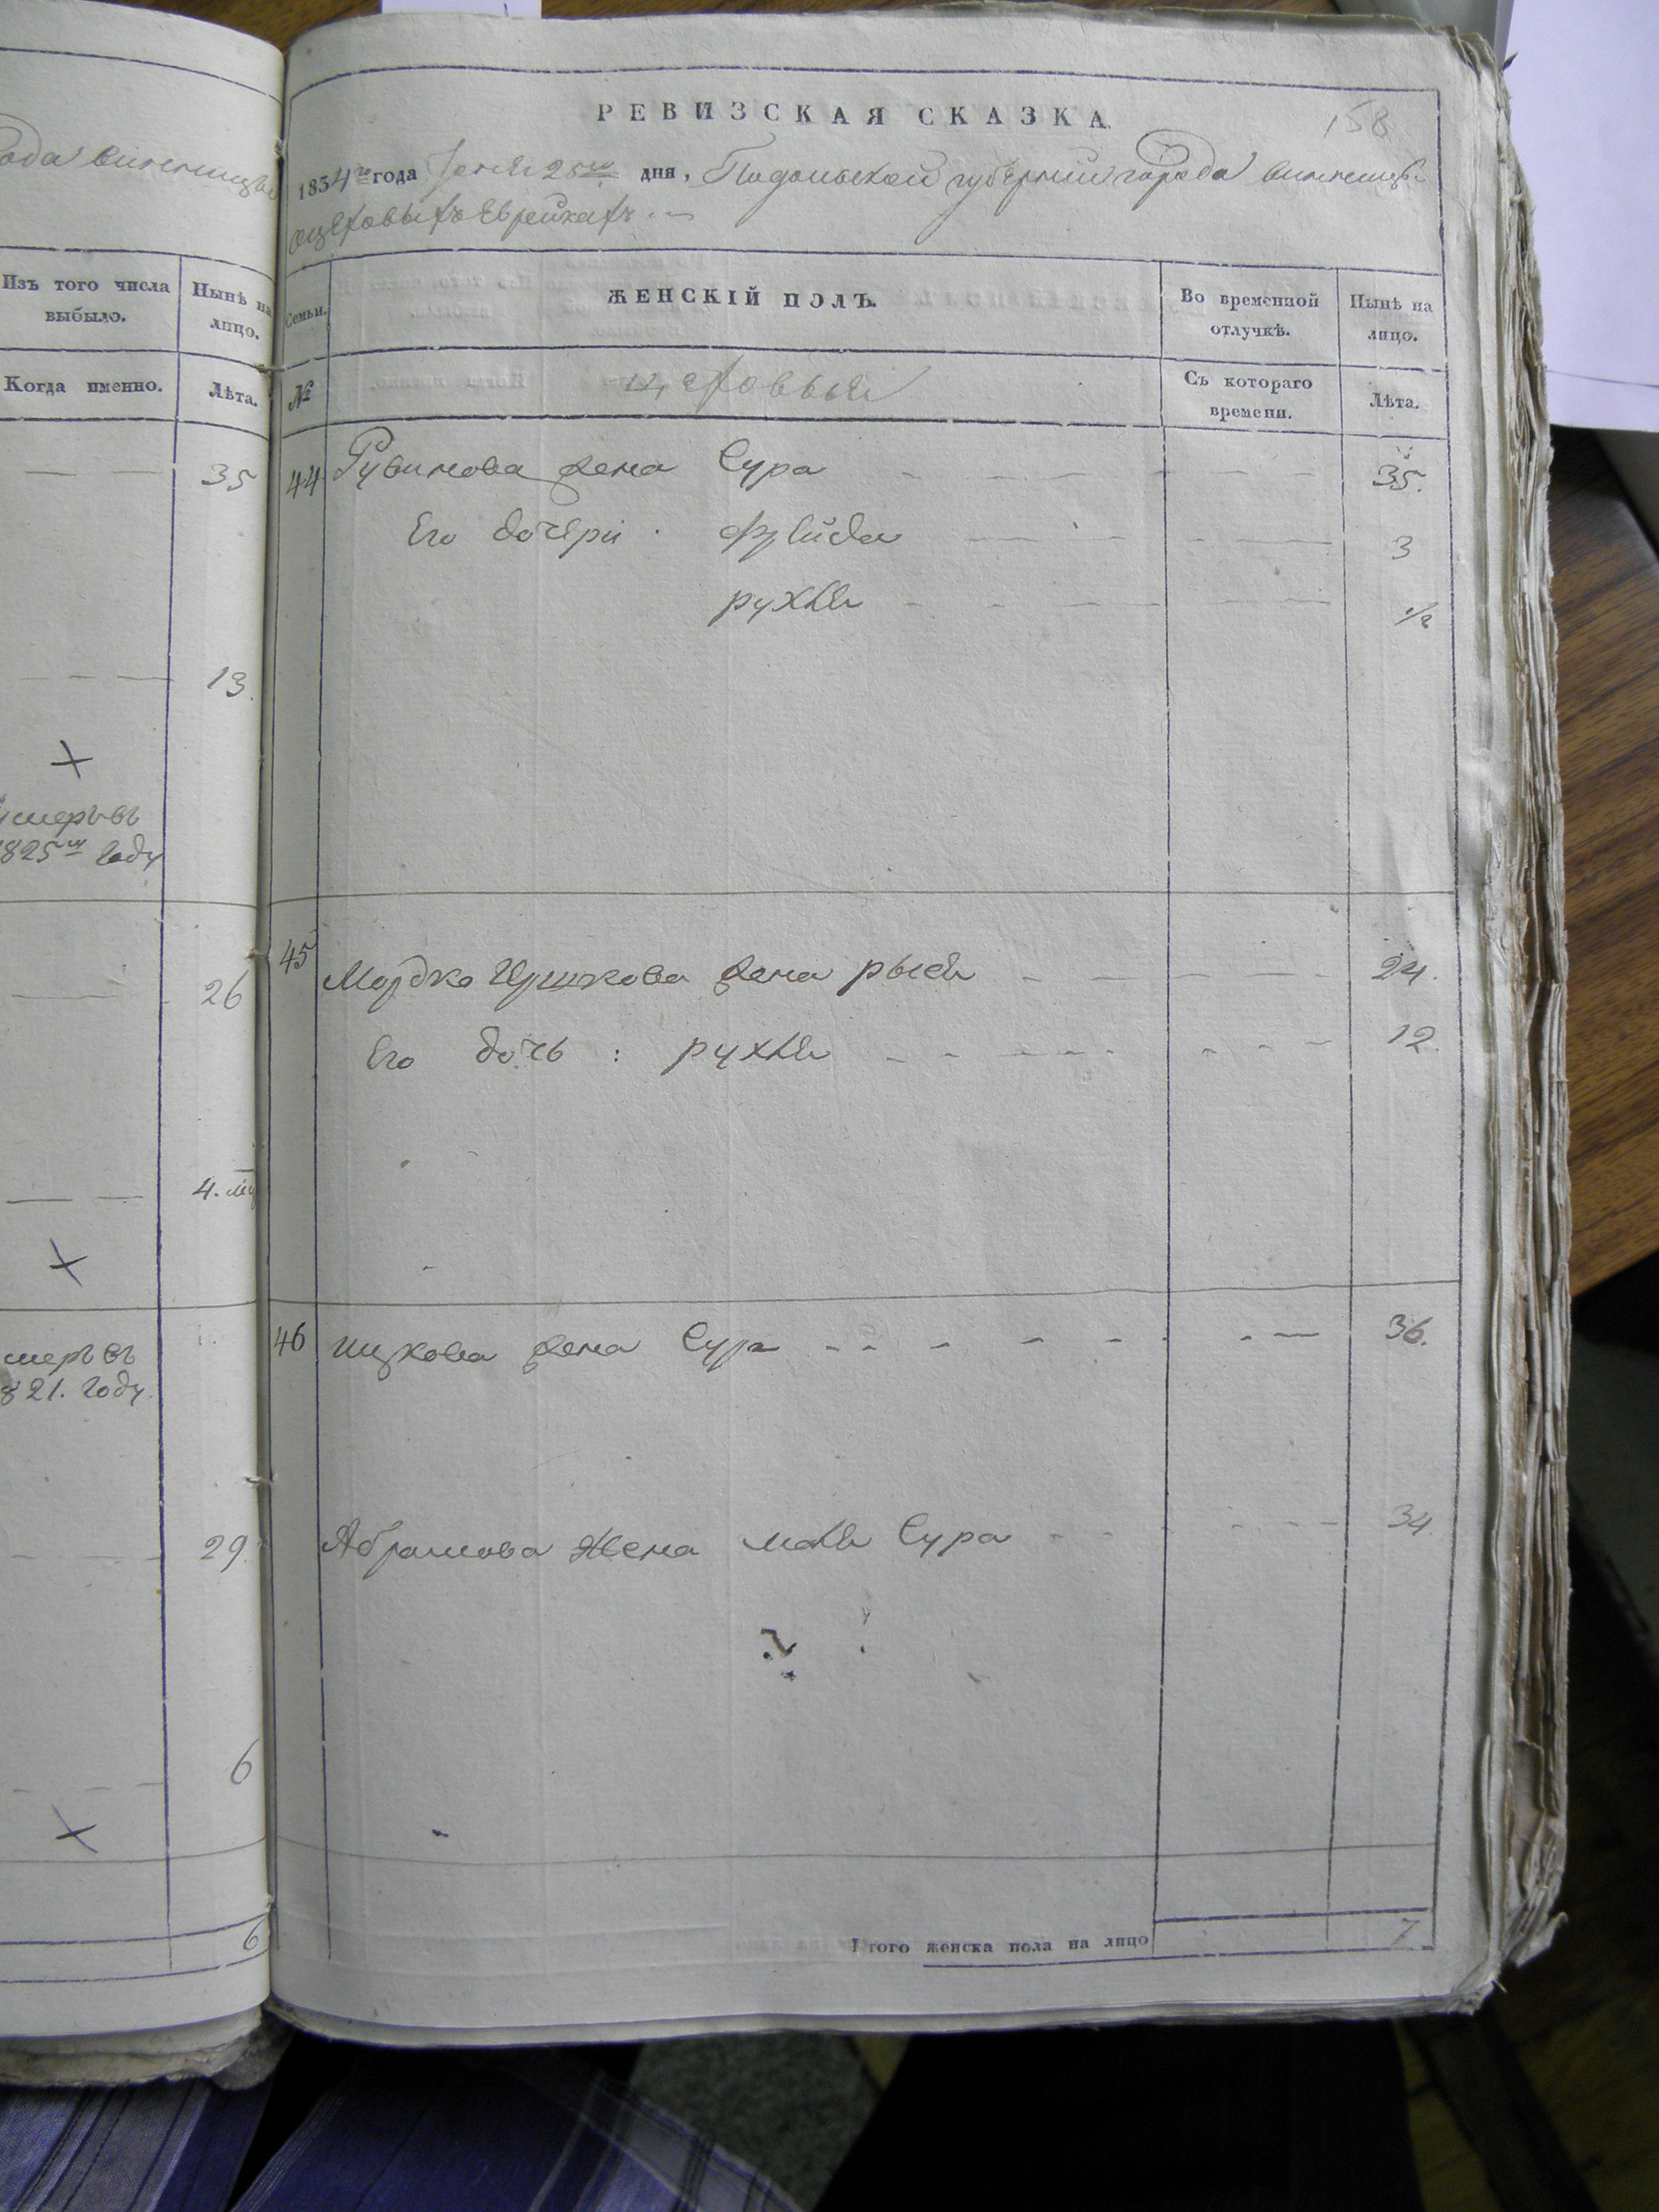 ода Винницы
Изъ того числа выбыло.
Нынѣ на лицо.
Когда именно.
Лѣта.
35
13.
умеръ въ
1825м году
26
4. мц
умеръ въ
821. году.
29
6
6
РЕВИЗСКАЯ СКАЗКА
158
1834го года Июня 25го дня, Подольской губернии города Винницы
о цеховыхъ Еврейкахъ
Семьи.
ЖЕНСКІЙ ПОЛЪ.
Во временной отлучкѣ.
Нынѣ на лицо.
№
цеховыя
Съ котораго времени.
Лѣта.
44 Рувинова жена Сура 35.
Его дочери Фрейда 3
рухля 1/2
45 Мордко Гершкова жена рыся 24.
Его дочь : рухля 12.
46 ицкова жена Сура 36.
Абрамова Жена маля Сура 34.
Итого женска пола на лицо 7